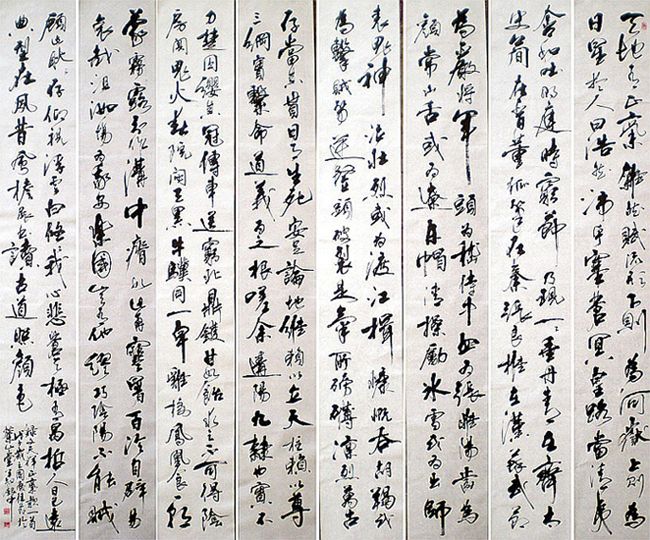 天地有正氣雜然賦流形下則為河嶽上則為
日星於人曰浩然沛乎塞蒼冥皇路當清夷
含和吐明庭時窮節乃現一一垂丹青在齊太
史簡在晉董狐筆在秦張良椎在漢蘇武節
為嚴將軍頭為嵇侍中血為張睢陽齒為
顏常山舌或為遼東帽清操勵冰雪或為出師
表鬼神泣壯烈或為渡江楫慷慨吞胡羯或
為擊賊笏逆豎頭破裂是氣所磅礴凜烈萬古
存當其貫日月生死安足論地維賴以立天柱賴以尊
三綱實繫命道義為之根嗟余遘陽九隸也實不
力楚囚纓其冠傳車送窮北鼎鑊甘如飴求之不可得陰
房闃鬼火春院閟天黑牛驥同一皁雞棲鳳凰食一朝
蒙霧露分作溝中瘠如此再寒暑百沴自辟易
哀哉沮洳場為我安樂國豈有他繆巧陰陽不能賊
顧此耿耿存仰視浮雲白悠悠我心悲蒼天曷有極哲人日已遠
典型在夙昔風檐展書讀古道照顏色
文天祥正氣歌一首